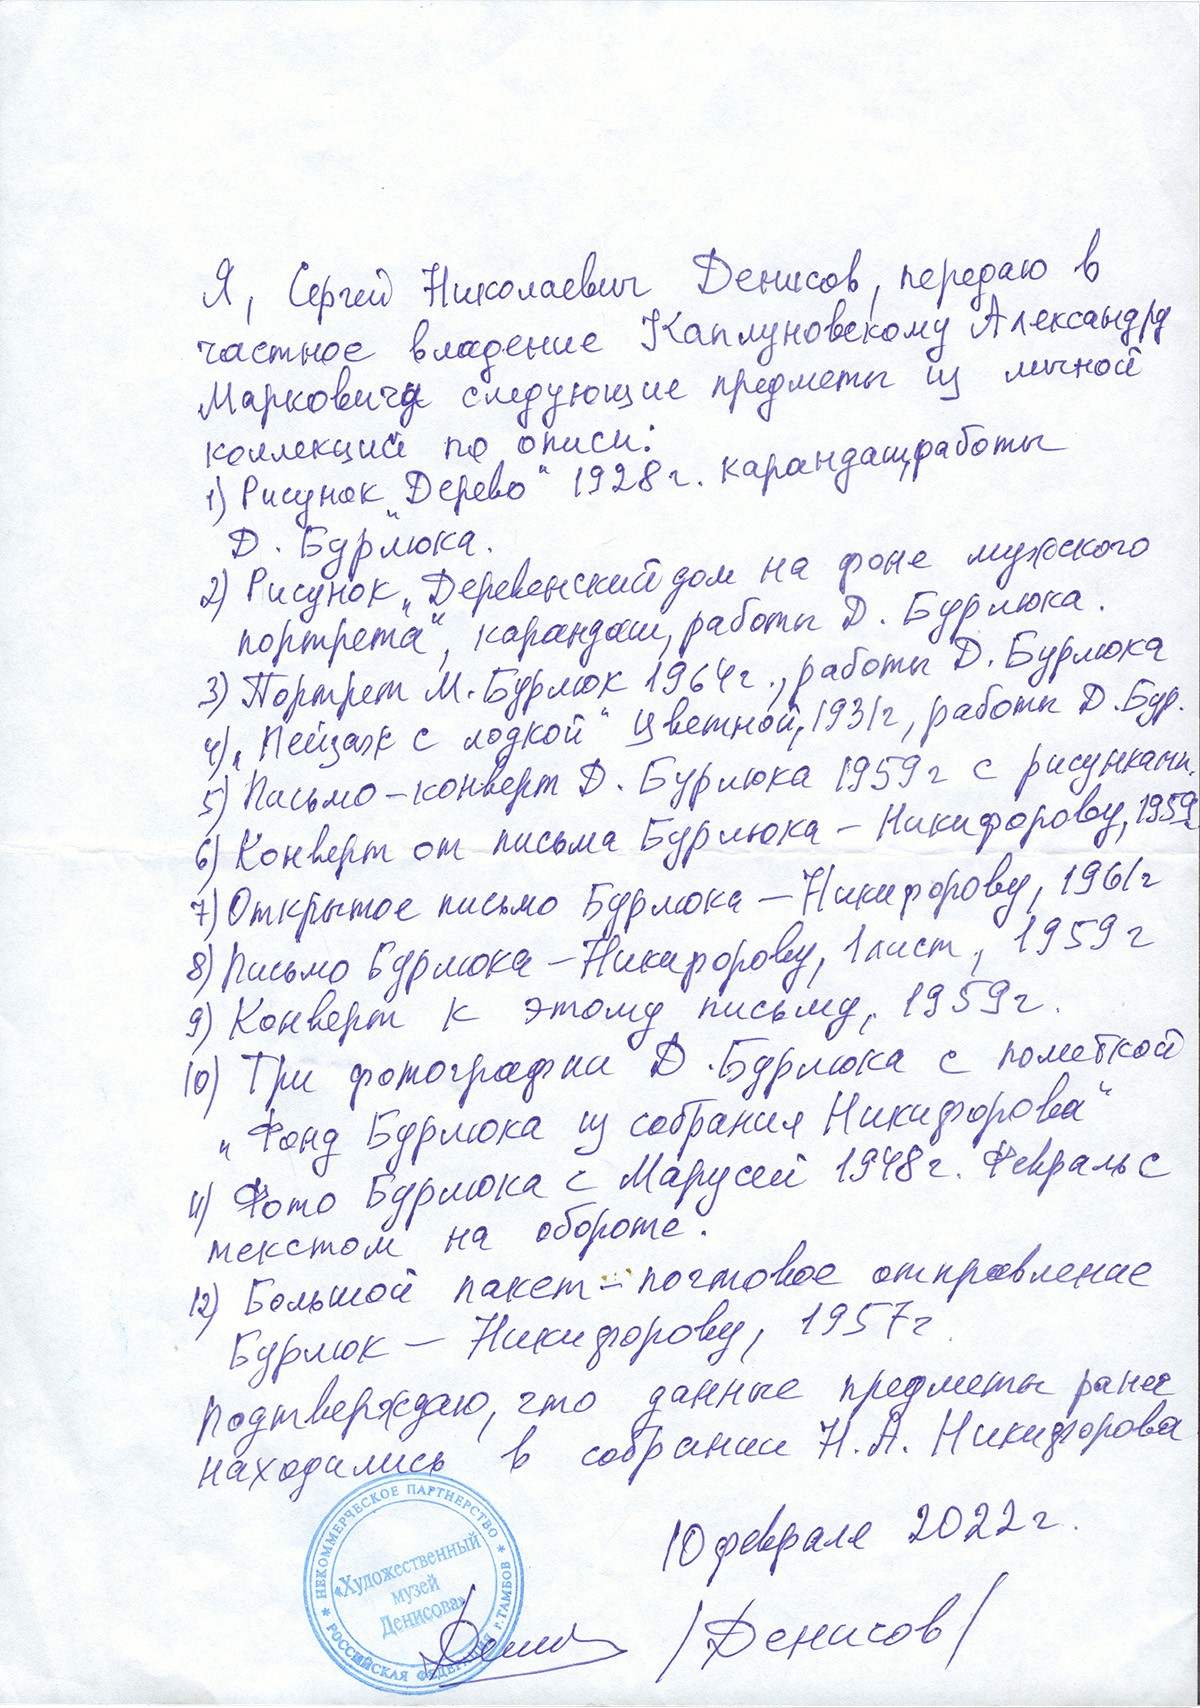 Я, Сергей Николаевич Денисов, передаю в
частное владение Каплуновскому Александру
Марковичу следующие предметы из личной
коллекции по описи:
1) Рисунок „Дерево“ 1928 г. карандаш, работы
Д. Бурлюка.
2) Рисунок „Деревенский дом на фоне мужского
портрета“, карандаш, работы Д. Бурлюка.
3) Портрет М. Бурлюк 1964 г., работы Д. Бурлюка
4) „Пейзаж с лодкой“ цветной, 1931 г, работы Д. Бур.
5) Письмо – конверт Д. Бурлюка 1959 г с рисунками.
6) Конверт от письма Бурлюка – Никифорову, 1959 г.
7) Открытое письмо Бурлюка – Никифорову, 1961 г
8) Письмо Бурлюка – Никифорову, 1 лист, 1959 г
9) Конверт к этому письму, 1959 г.
10) Три фотографии Д. Бурлюка с пометкой
„Фонд Бурлюка из собрания Никифорова“
11) Фото Бурлюка с Марусей 1948 г. Февраль с
текстом на обороте.
12) Большой пакет – почтовое отправление
Бурлюк – Никифорову, 1957 г.
Подтверждаю, что данные предметы ранее
находились в собрании Н. А. Никифорова
10 февраля 2022 г.
/Денисов/
* НЕКОММЕРЧЕСКОЕ ПАРТНЕРСТВО *
«Художественный
музей
Денисова»
РОССИЙСКАЯ ФЕДЕРАЦИЯ г. ТАМБОВ